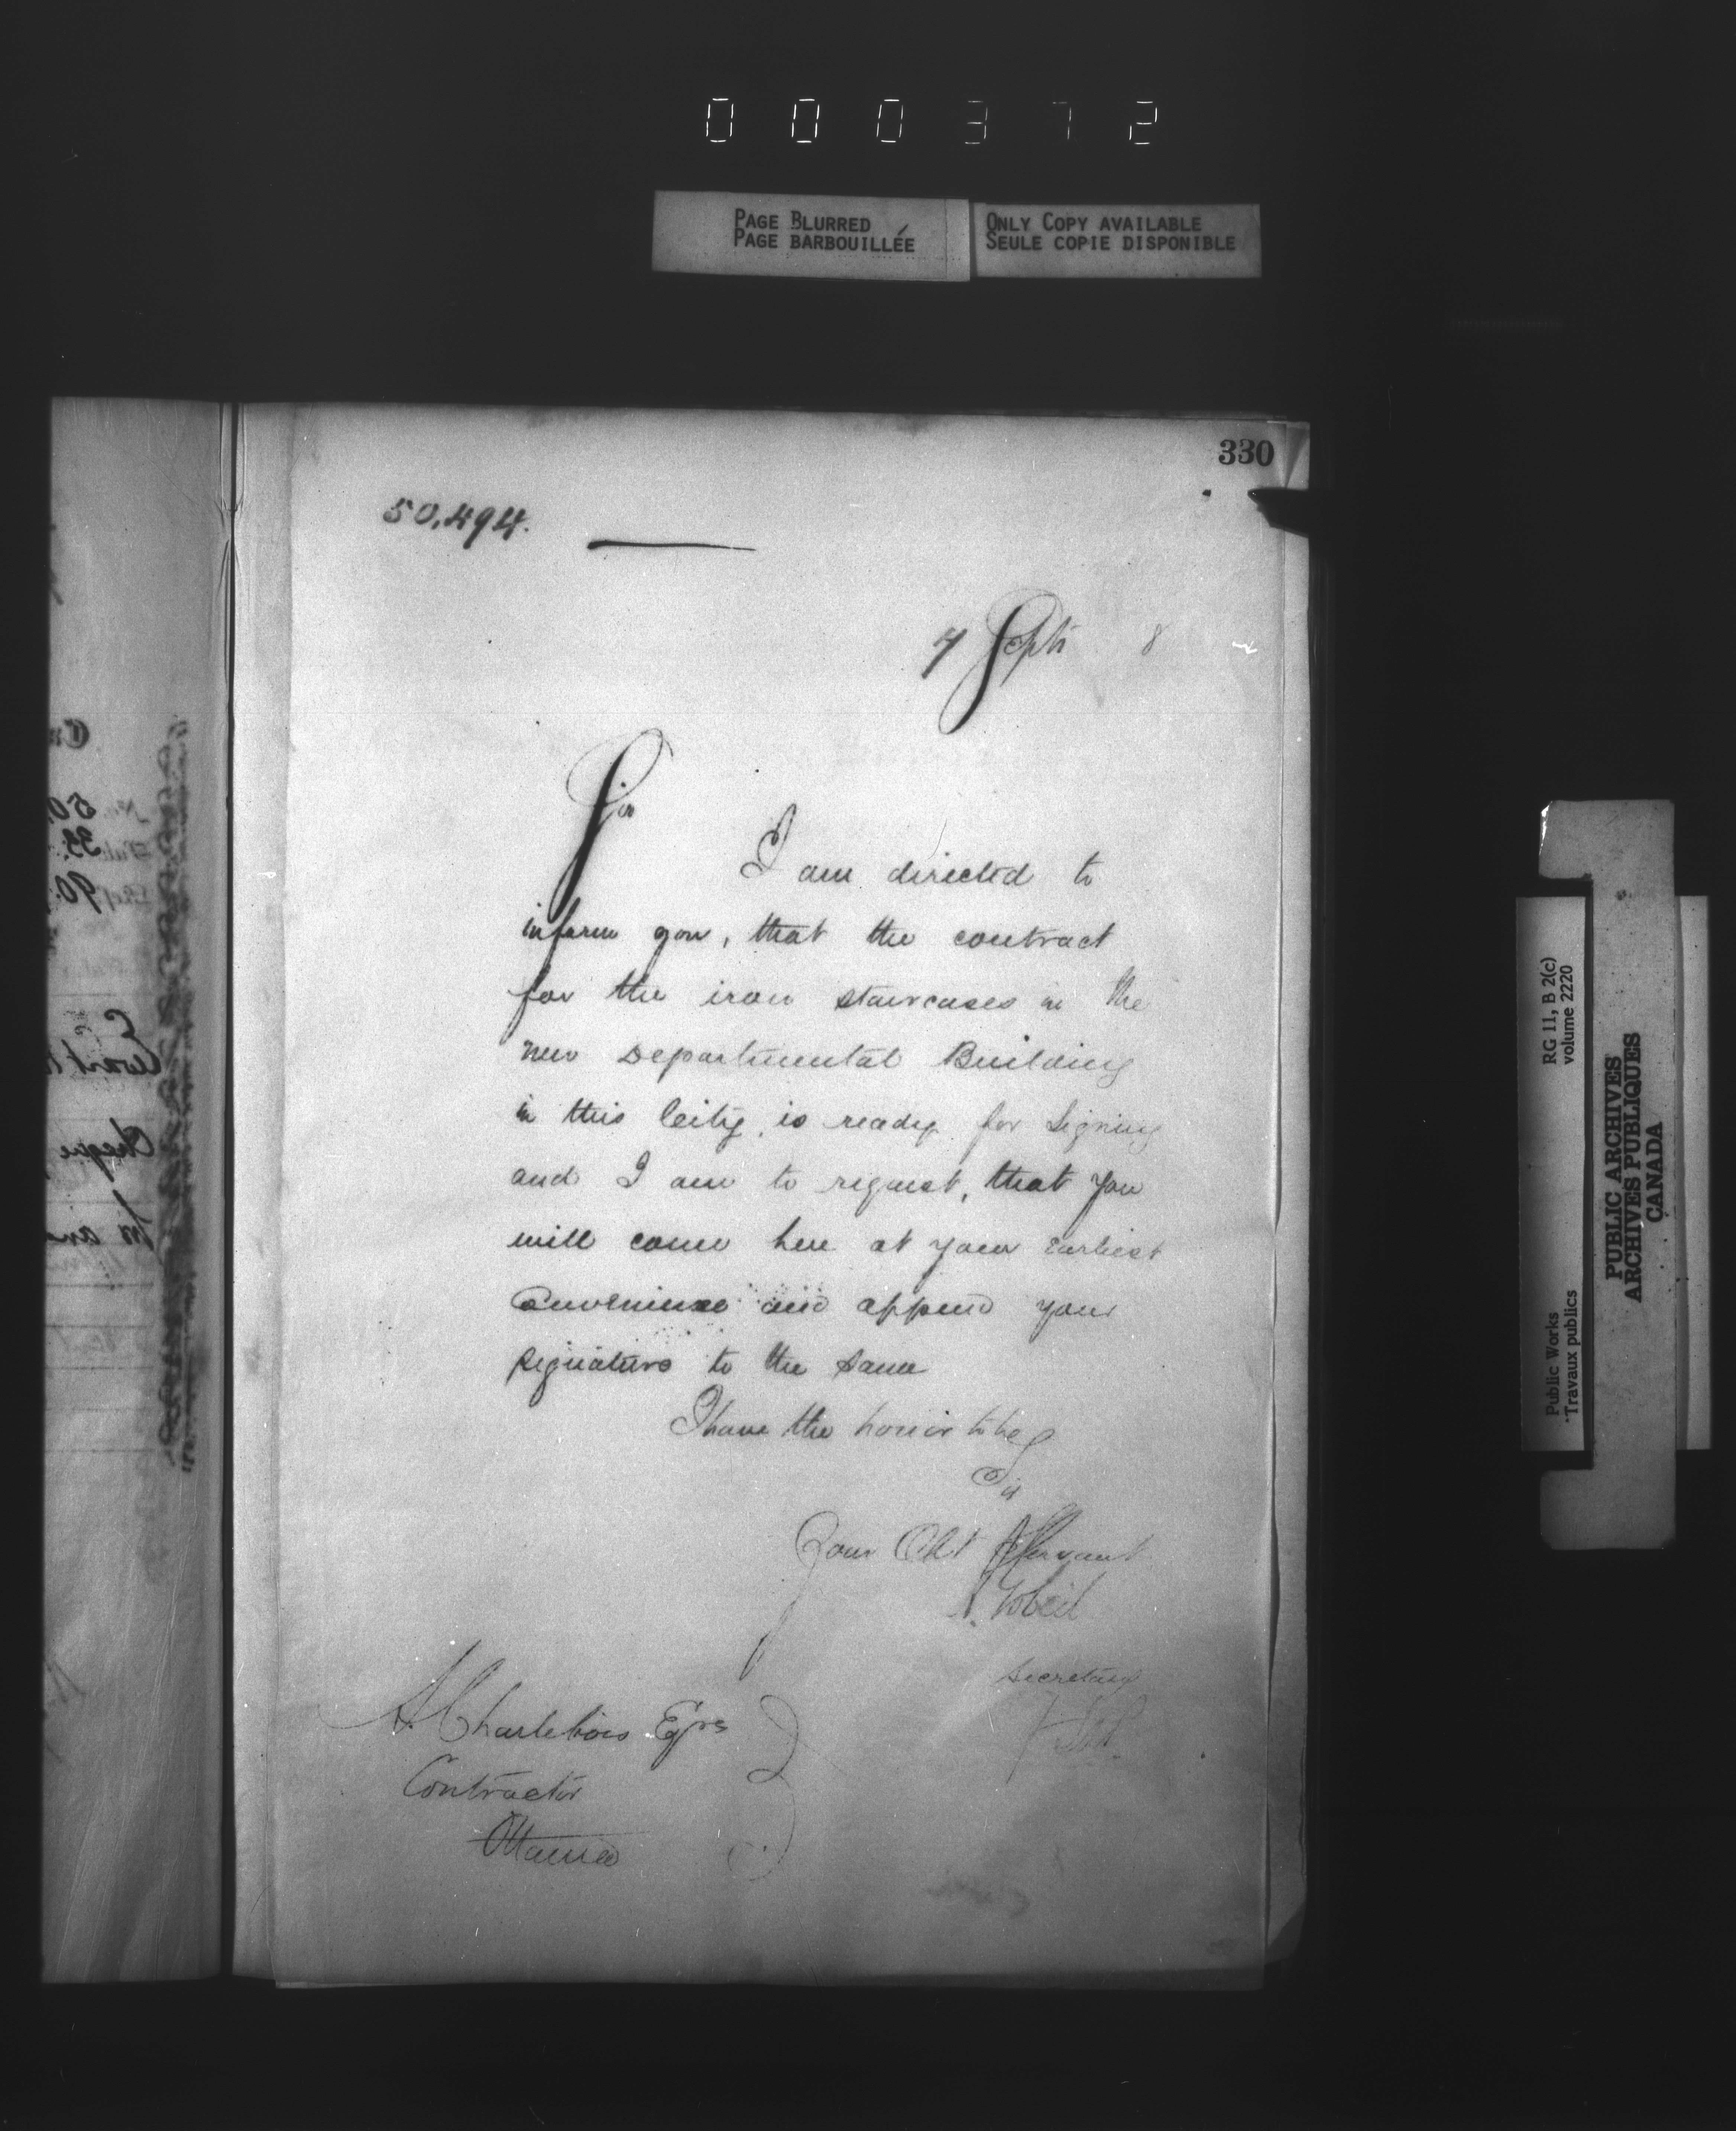 000372
PAGE BLURRED
PAGE BARBOUILLÉE
ONLY COPY AVAILABLE
SEULE COPIE DISPONIBLE
330
50,494.
7 Septr 8
Sir
I am directed to
inform you, that the contract
for the iron staircases in the
new Departmental Building
in this City, is ready for signing
and I am to request, that you
will come here at your earliest
convenience and append your
signature to the same
I have the honor to be
Sir
Your Obt Servant
A. Gobeil
Secretary
A. Charlebois Eqre
Contractor
Ottawa
RG 11, B 2(c)
volume 2220
Public Works
Travaux publics
PUBLIC ARCHIVES
ARCHIVES PUBLIQUES
CANADA